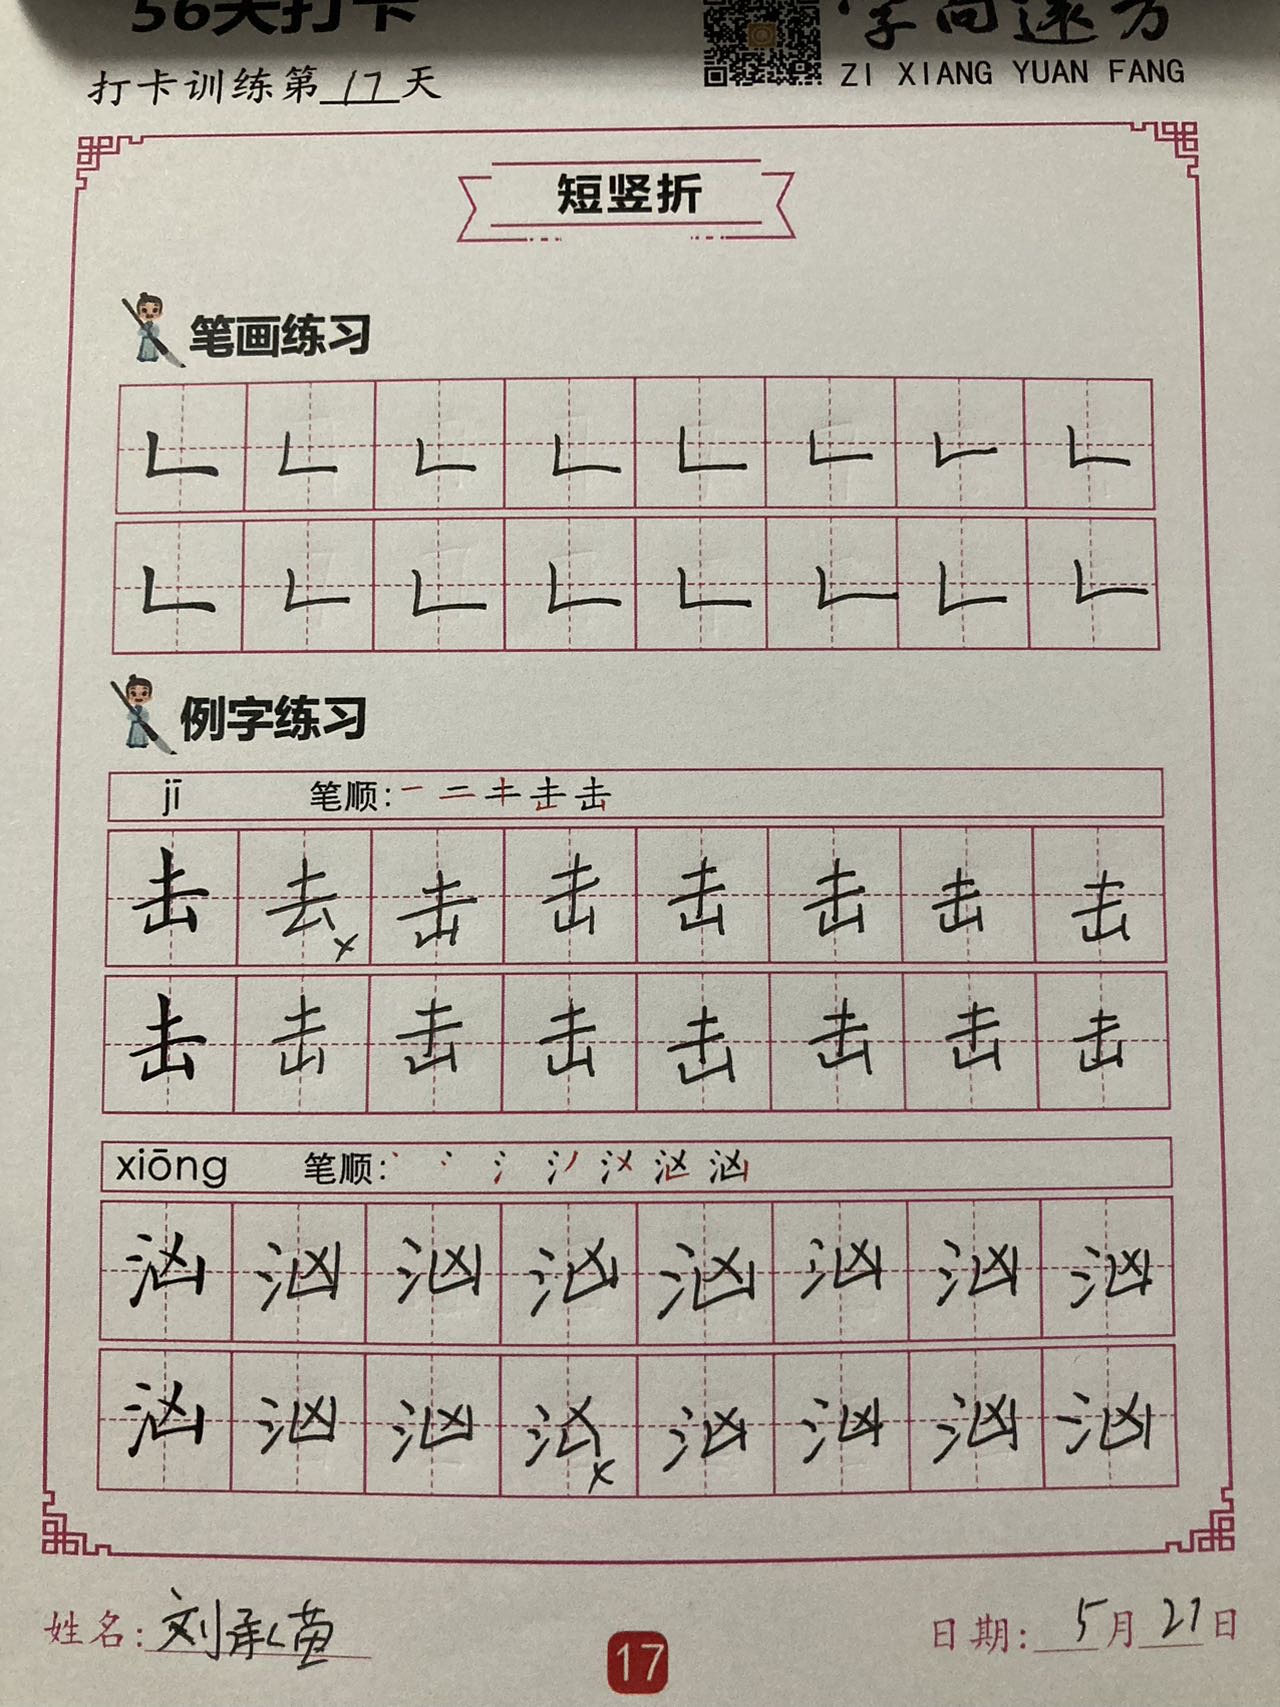 56天打卡
字向远方
ZI XIANG YUAN FANG
打卡训练第17天
短竖折
笔画练习
例字练习
jī 笔顺:
击 去 × 击 击 击 击 击 击
击 击 击 击 击 击 击 击
xiōng 笔顺:
汹 汹 汹 汹 汹 汹 汹 汹
汹 汹 汹 × 汹 汹 汹 汹
姓名: 刘
日期: 5月21日
17